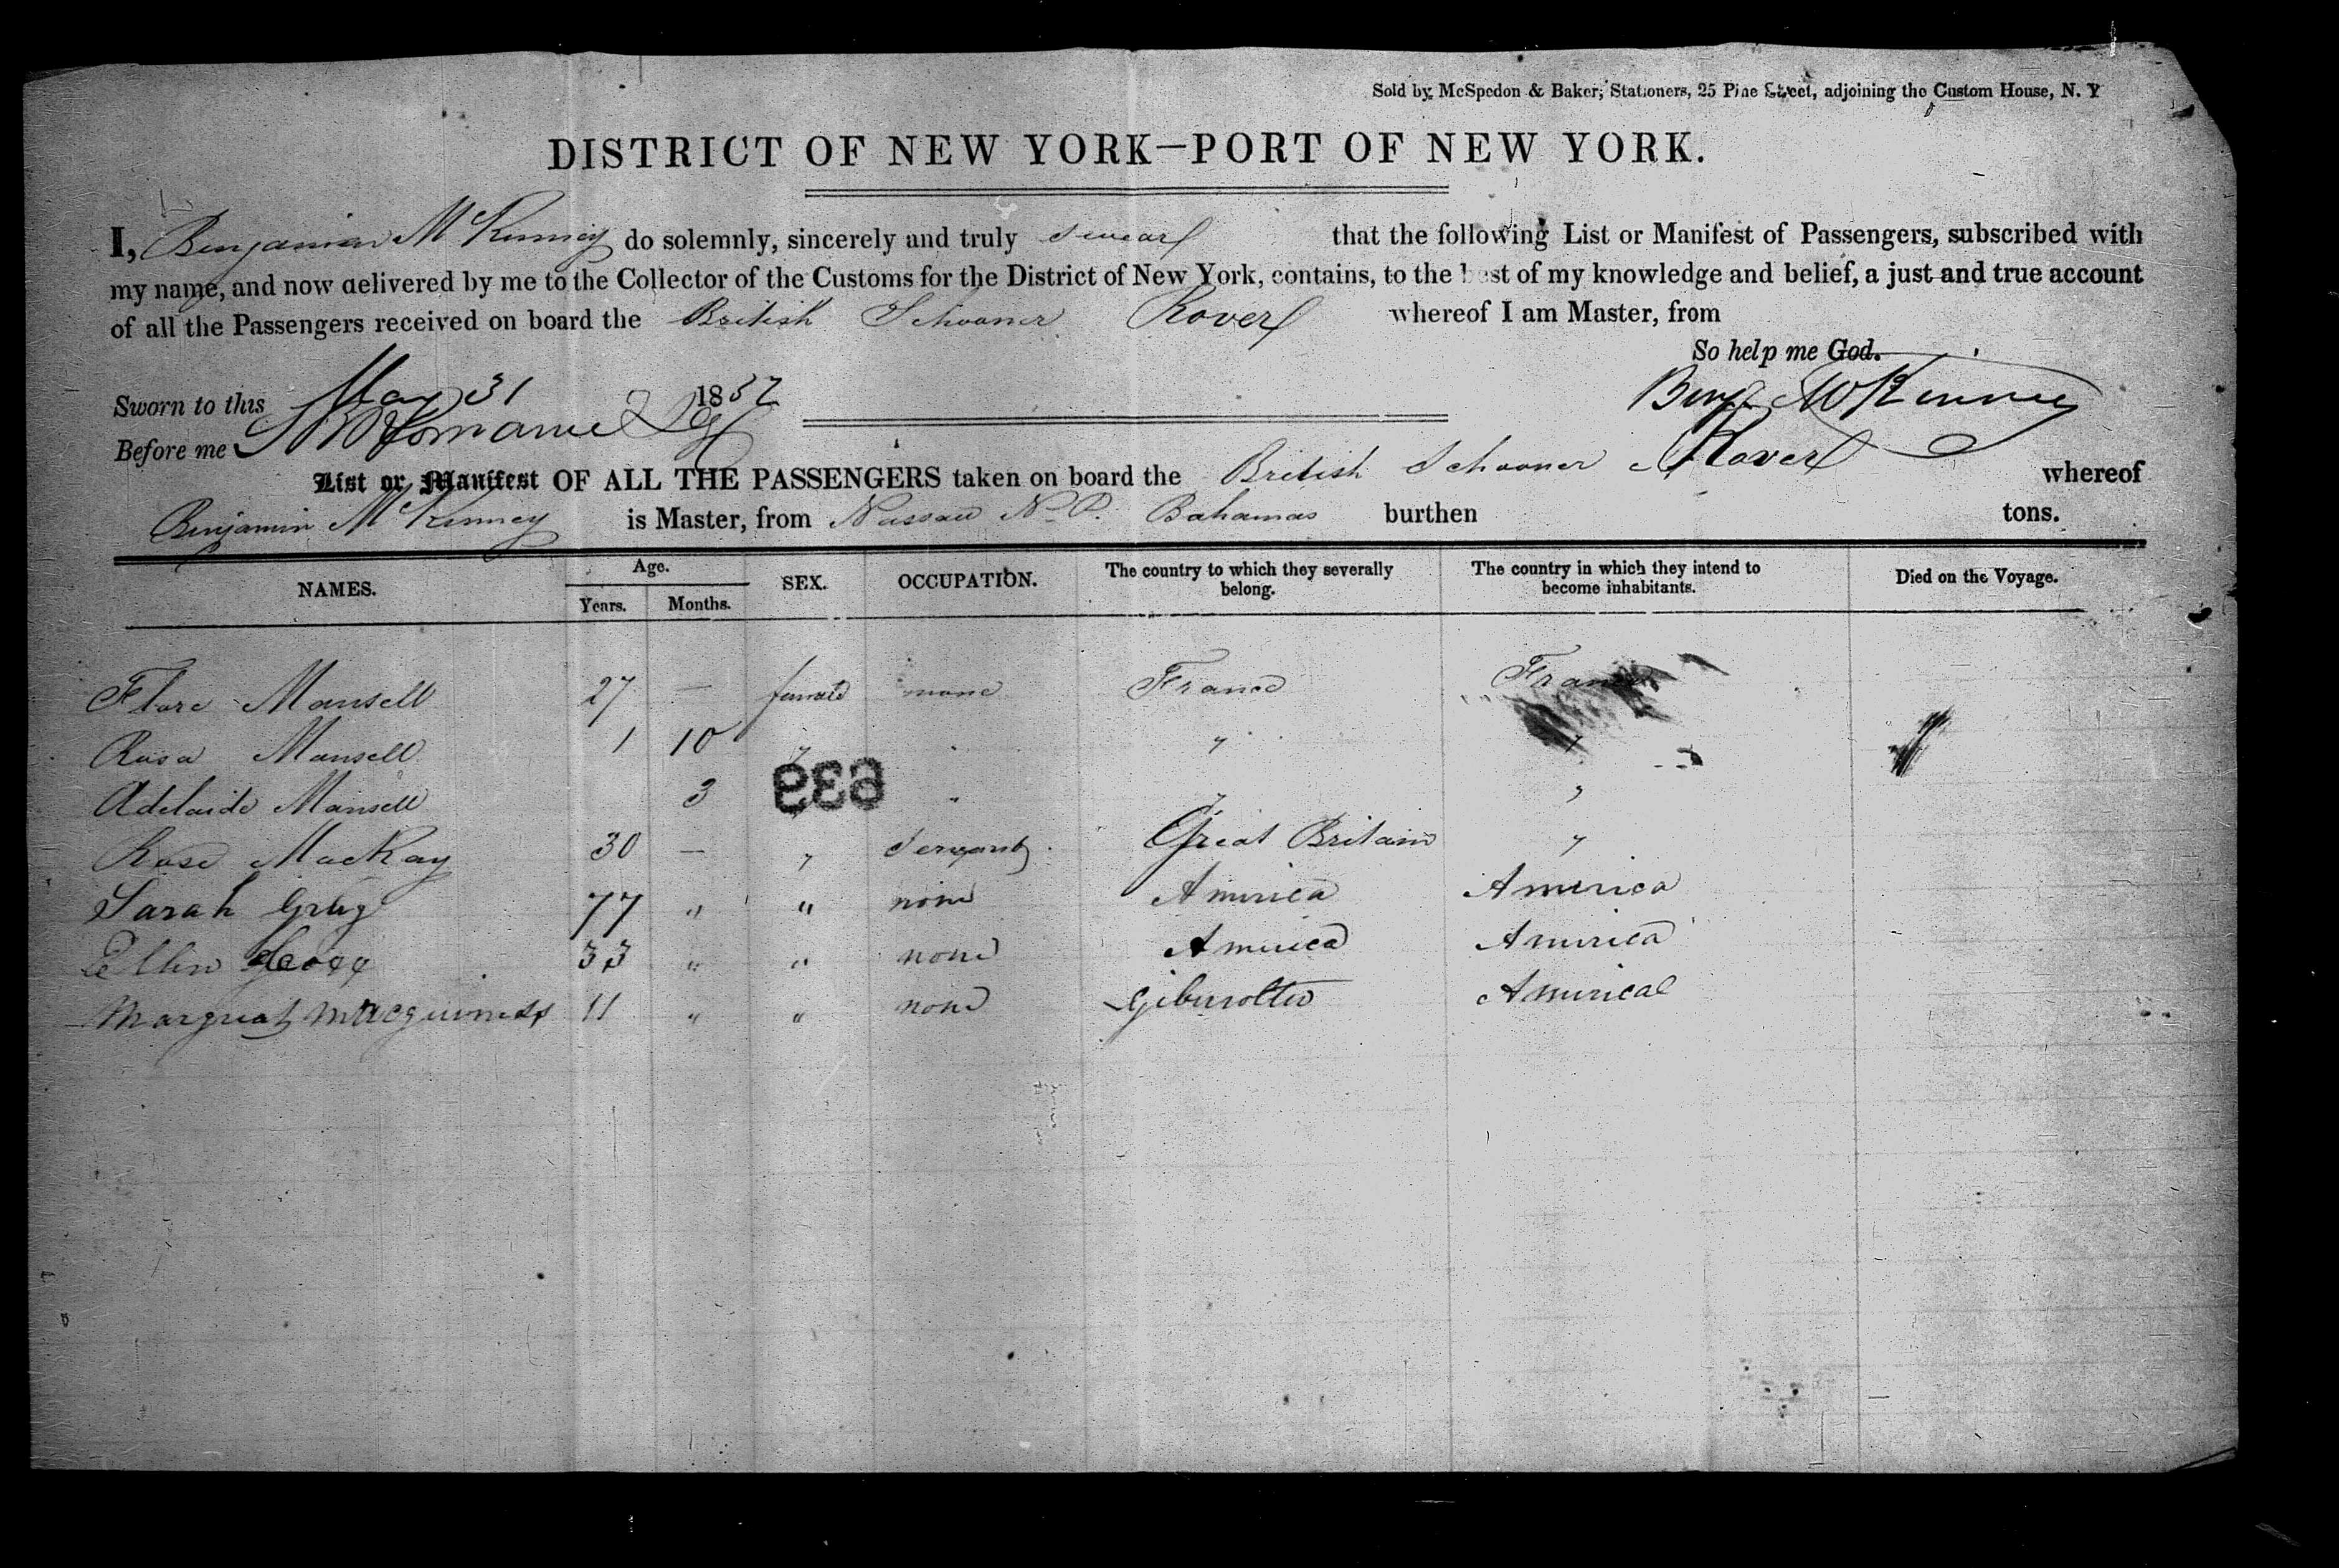 Sold by McSpedon & Baker, Stationers, 25 Pine Street, adjoining the Custom House, N. Y
DISTRICT OF NEW YORK—PORT OF NEW YORK.
I, Benjamin McKinney do solemnly, sincerely and truly swear that the following List or Manifest of Passengers, subscribed with
my name, and now delivered by me to the Collector of the Customs for the District of New York, contains, to the best of my knowledge and belief, a just and true account
of all the Passengers received on board the British Schooner Rover whereof I am Master, from
So help me God.
Sworn to this May 31 1852 Benj McKinney
Before me
List or Manifest OF ALL THE PASSENGERS taken on board the British Schooner Rover whereof
Benjamin McKinney is Master, from Nassau N. P. Bahamas burthen tons.
NAMES. Age. Years. Months. SEX. OCCUPATION. The country to which they severally belong. The country in which they intend to become inhabitants. Died on the Voyage.
Flore Mansell 27 — female none France France
Rosa Mansell 1 10 " " " "
Adelaide Mansell 3 " " " "
639
Rose MacKay 30 — " Servant Great Britain "
Sarah 77 " " none America America
Ellen 33 " " none America America
Margreat Macguiness 11 " " none Giburolter America